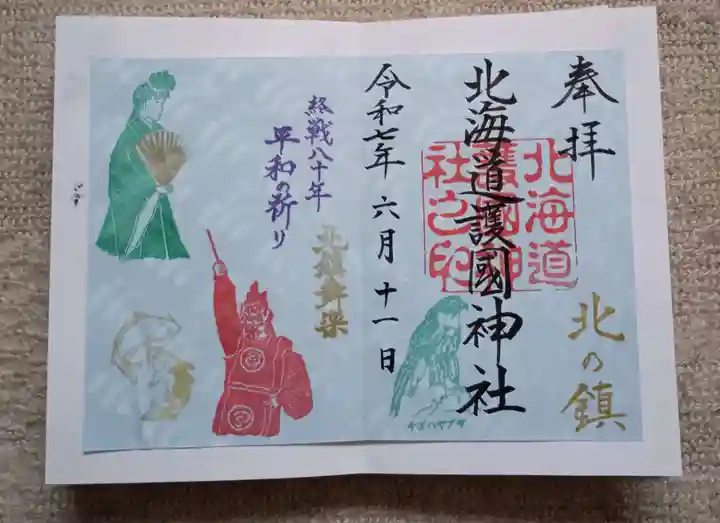 奉拝
北の鎮
北海道護國神社
北海道
護國神
社之印
チゴハヤブサ
令和七年 六月 十一日
終戦八十年
平和の祈り